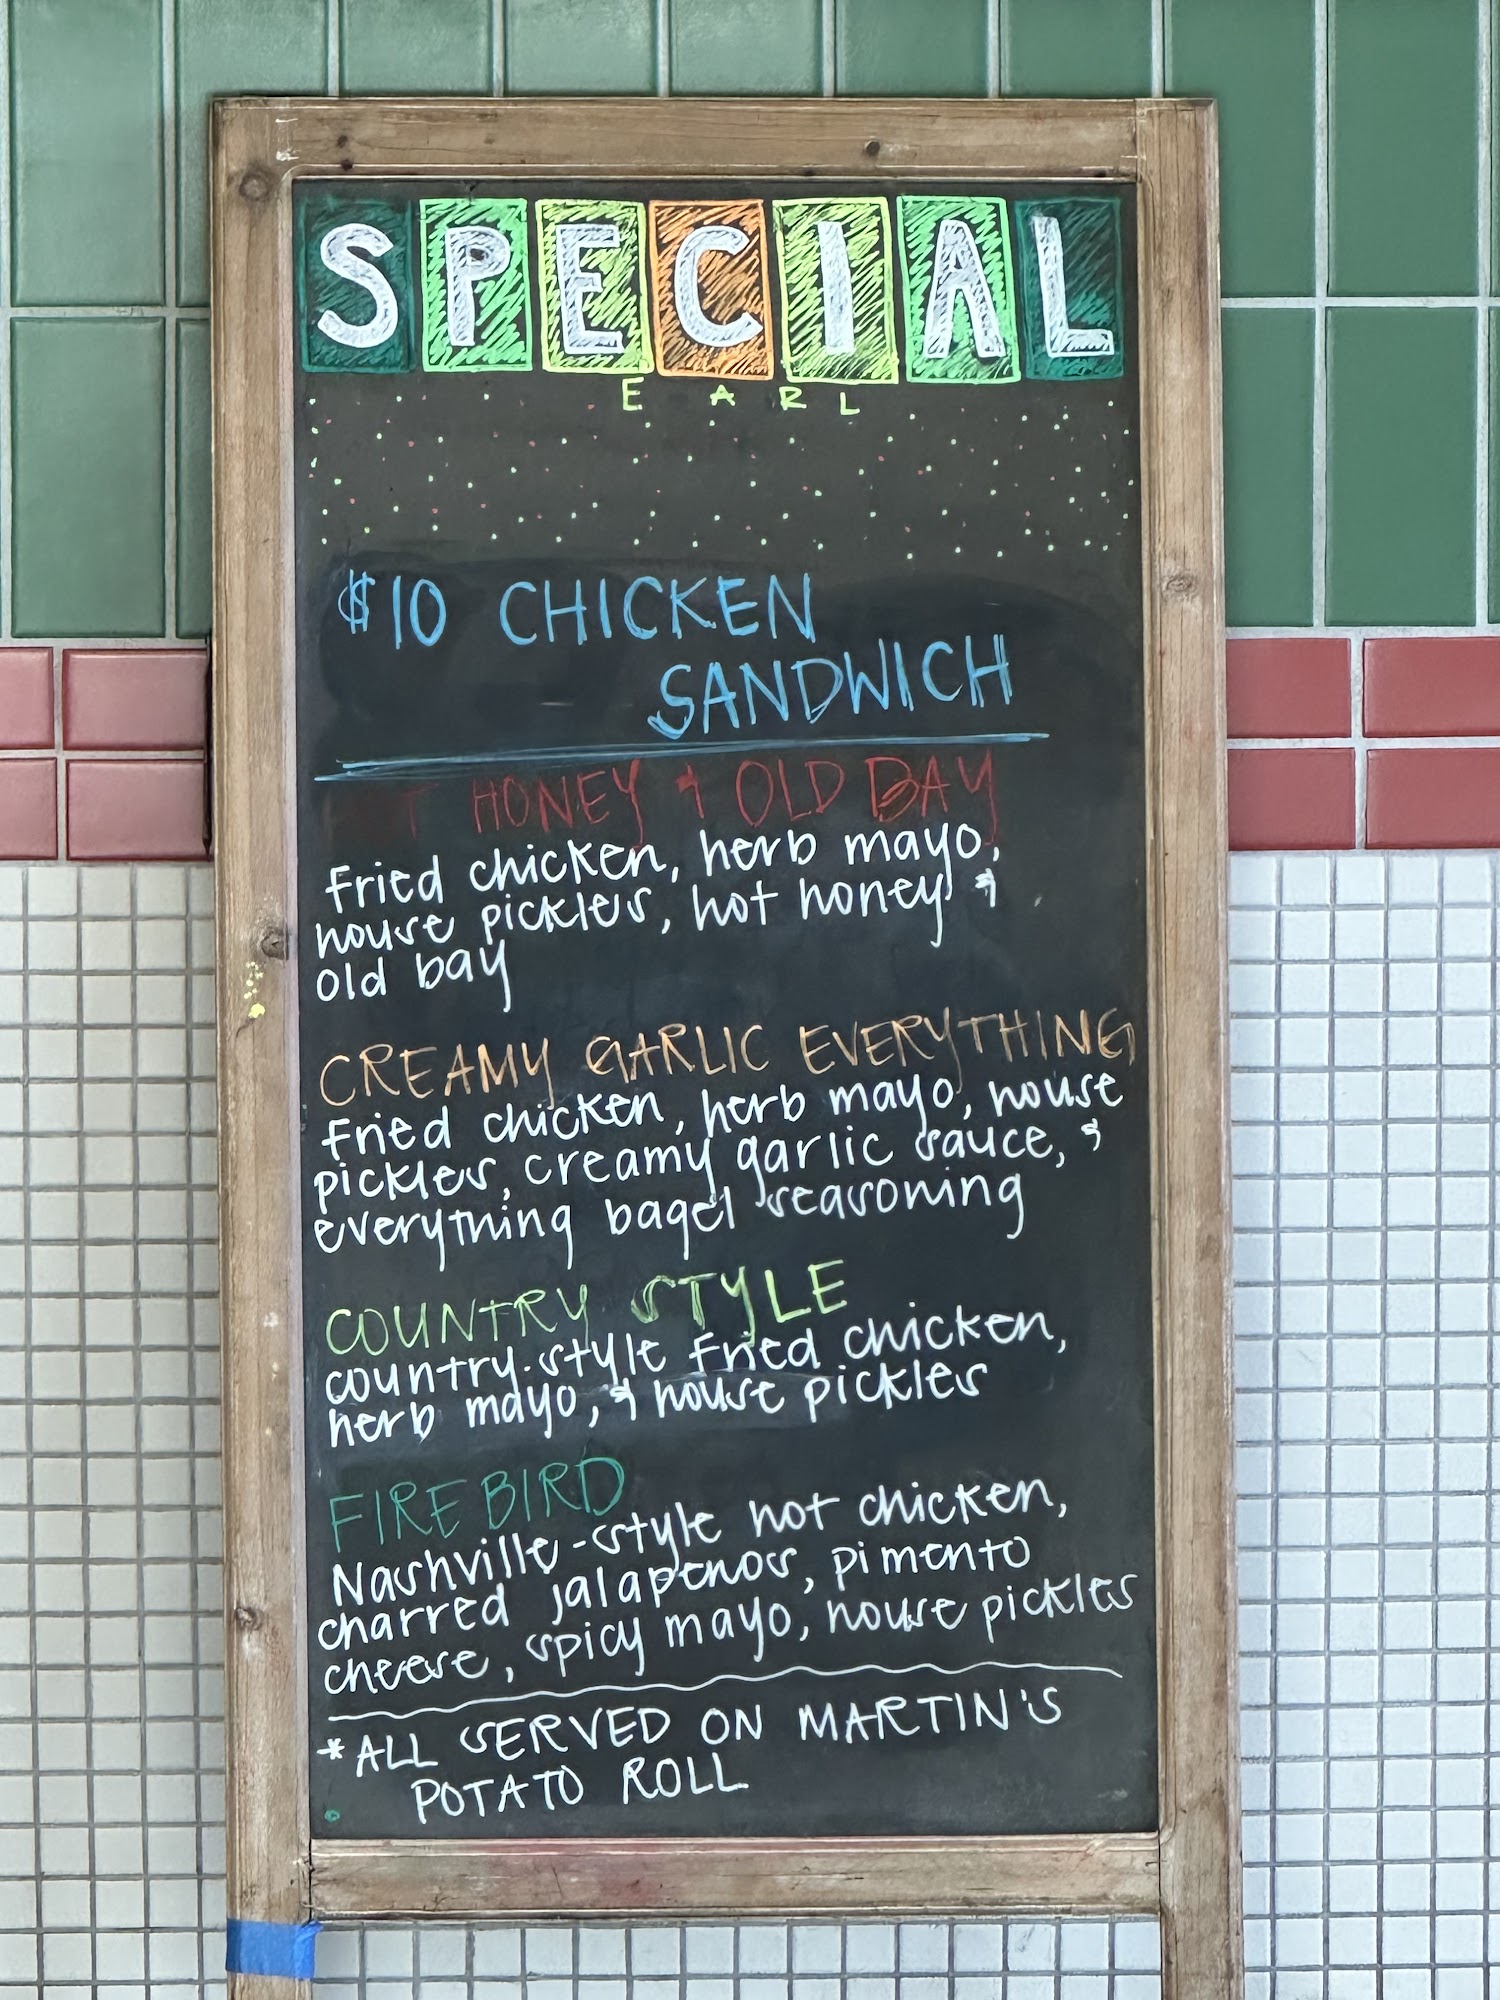 SPECIAL
EARL
$10 CHICKEN
SANDWICH
HONEY & OLD BAY
Fried chicken, herb mayo,
house pickles, hot honey &
old bay
CREAMY GARLIC EVERYTHING
Fried chicken, herb mayo, house
pickles, creamy garlic sauce, &
everything bagel seasoning
COUNTRY STYLE
country-style Fried chicken,
herb mayo, & house pickles
FIREBIRD
Nashville-style hot chicken,
charred jalapenos, pimento
cheese, spicy mayo, house pickles
*ALL SERVED ON MARTIN'S
POTATO ROLL